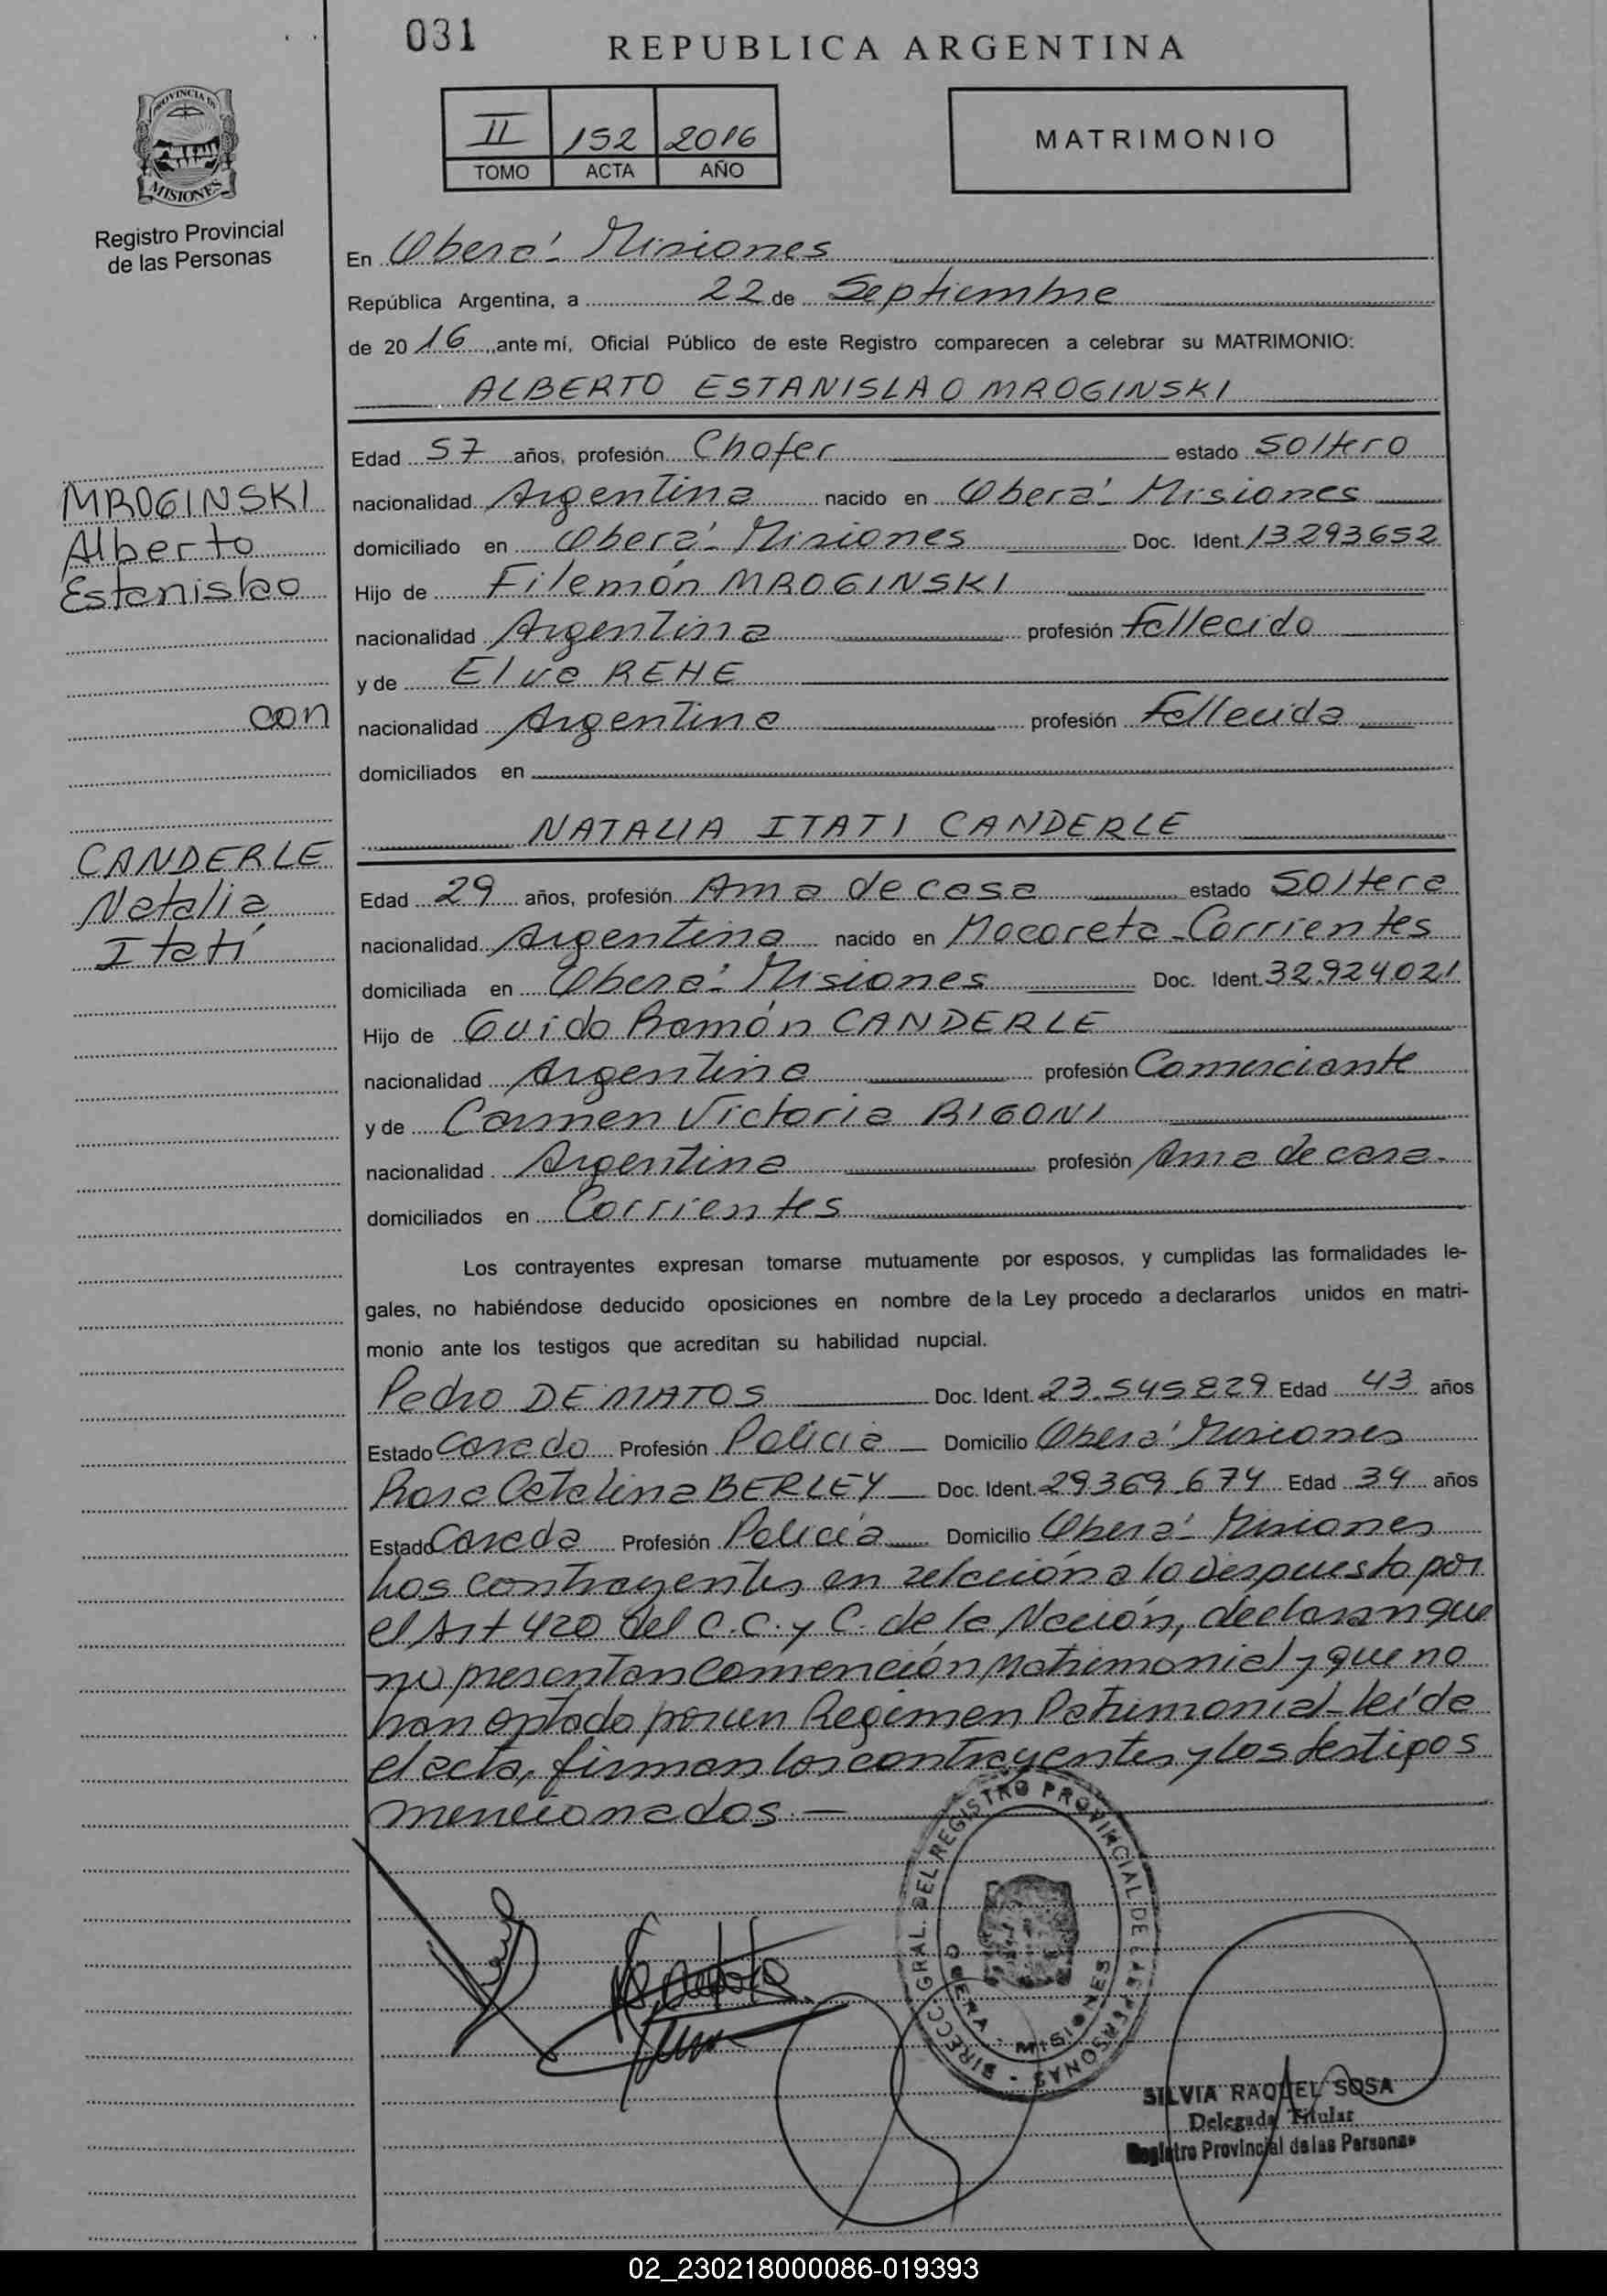 031
REPUBLICA ARGENTINA
PROVINCIA DE
MISIONES
Registro Provincial
de las Personas
II 152 2016
TOMO ACTA AÑO
MATRIMONIO
En Oberá - Misiones
República Argentina, a 22 de Septiembre
de 2016, ante mí, Oficial Público de este Registro comparecen a celebrar su MATRIMONIO:
ALBERTO ESTANISLAO MROGINSKI
Edad 57 años, profesión Chofer estado Soltero
nacionalidad Argentina nacido en Oberá - Misiones
domiciliado en Oberá - Misiones Doc. Ident. 13293652
Hijo de Filemón MROGINSKI
nacionalidad Argentina profesión Fallecido
y de Elva REHE
nacionalidad Argentina profesión Fallecida
domiciliados en
MROGINSKI
Alberto
Estanislao
con
CANDERLE
Natalia
Itatí
NATALIA ITATI CANDERLE
Edad 29 años, profesión Ama de casa estado Soltera
nacionalidad Argentina nacido en Mocoreta - Corrientes
domiciliada en Oberá - Misiones Doc. Ident. 32.924.021
Hijo de Guido Ramón CANDERLE
nacionalidad Argentina profesión Comerciante
y de Carmen Victoria RIGONI
nacionalidad Argentina profesión Ama de casa.
domiciliados en Corrientes
Los contrayentes expresan tomarse mutuamente por esposos, y cumplidas las formalidades le-
gales, no habiéndose deducido oposiciones en nombre de la Ley procedo a declararlos unidos en matri-
monio ante los testigos que acreditan su habilidad nupcial.
Pedro DE MATOS Doc. Ident. 23.545829 Edad 43 años
Estado Casado Profesión Policia Domicilio Oberá Misiones
Rosa Catalina BERLEY Doc. Ident. 29369.674 Edad 34 años
Estado Casada Profesión Policía Domicilio Oberá - Misiones
Los contrayentes en relación a lo Dispuesto por
el Art 420 del C.C. y C. de la Nación, declaran que
no presentan Convención Matrimonial y que no
han optado por un Regimen Patrimonial - Leída
el acta, firman los contrayentes y los testigos
mencionados. —
DIRECC. GRAL. DEL REGISTRO PROVINCIAL DE LAS PERSONAS -
OBERA - MISIONES
SILVIA RAQUEL SOSA
Delegada Titular
Registro Provincial de las Personas
02_230218000086-019393